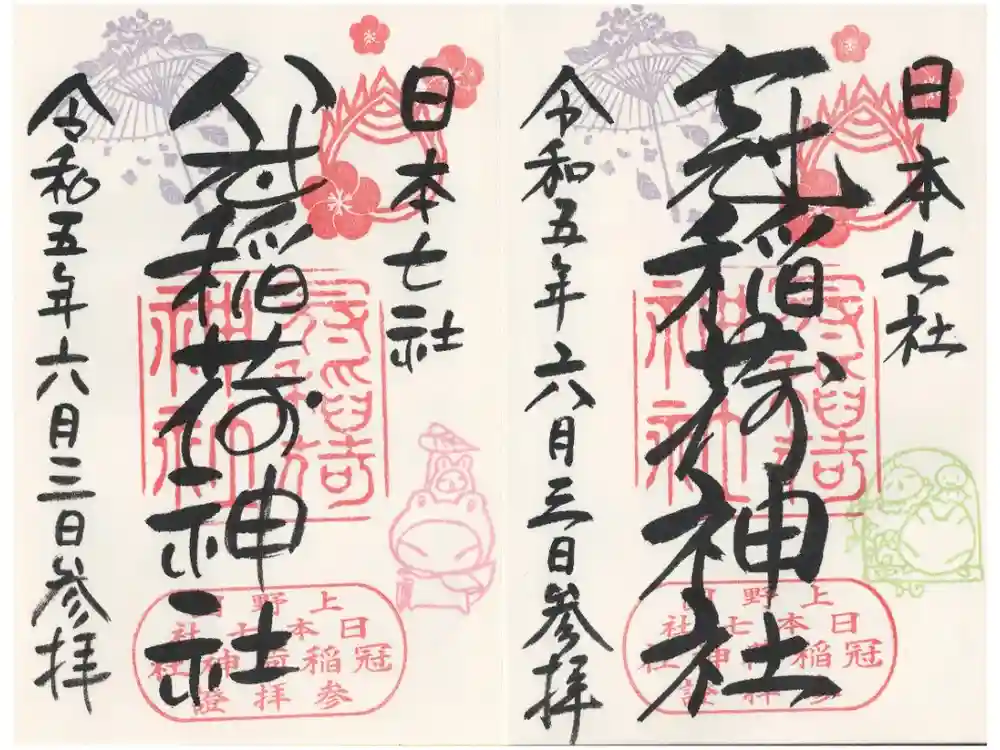 日本七社
冠稲荷神社
令和五年六月三日参拝
冠稲荷
神社
上野國
日本七社
冠稲荷神社
参拝證
日本七社
冠稲荷神社
令和五年六月三日参拝
冠稲荷
神社
上野國
日本七社
冠稲荷神社
参拝證